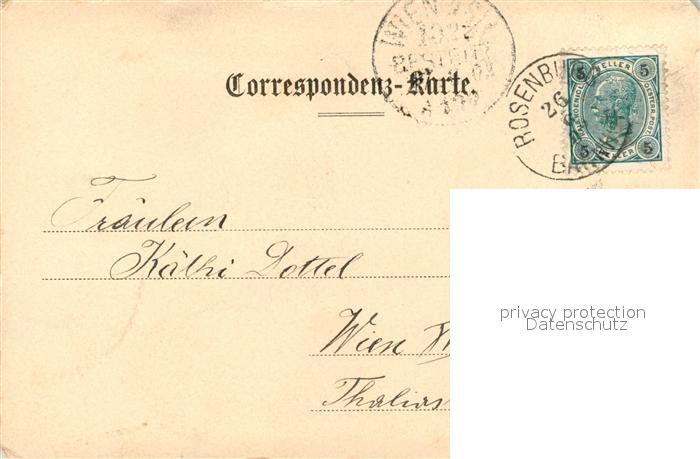 WIEN
Correspondenz-Karte.
ROSENBU
26
5 HELLER 5
5 HELLER 5
Fräulein
Käthi Dottel
Wien XVI
Thalias
privacy protection
Datenschutz